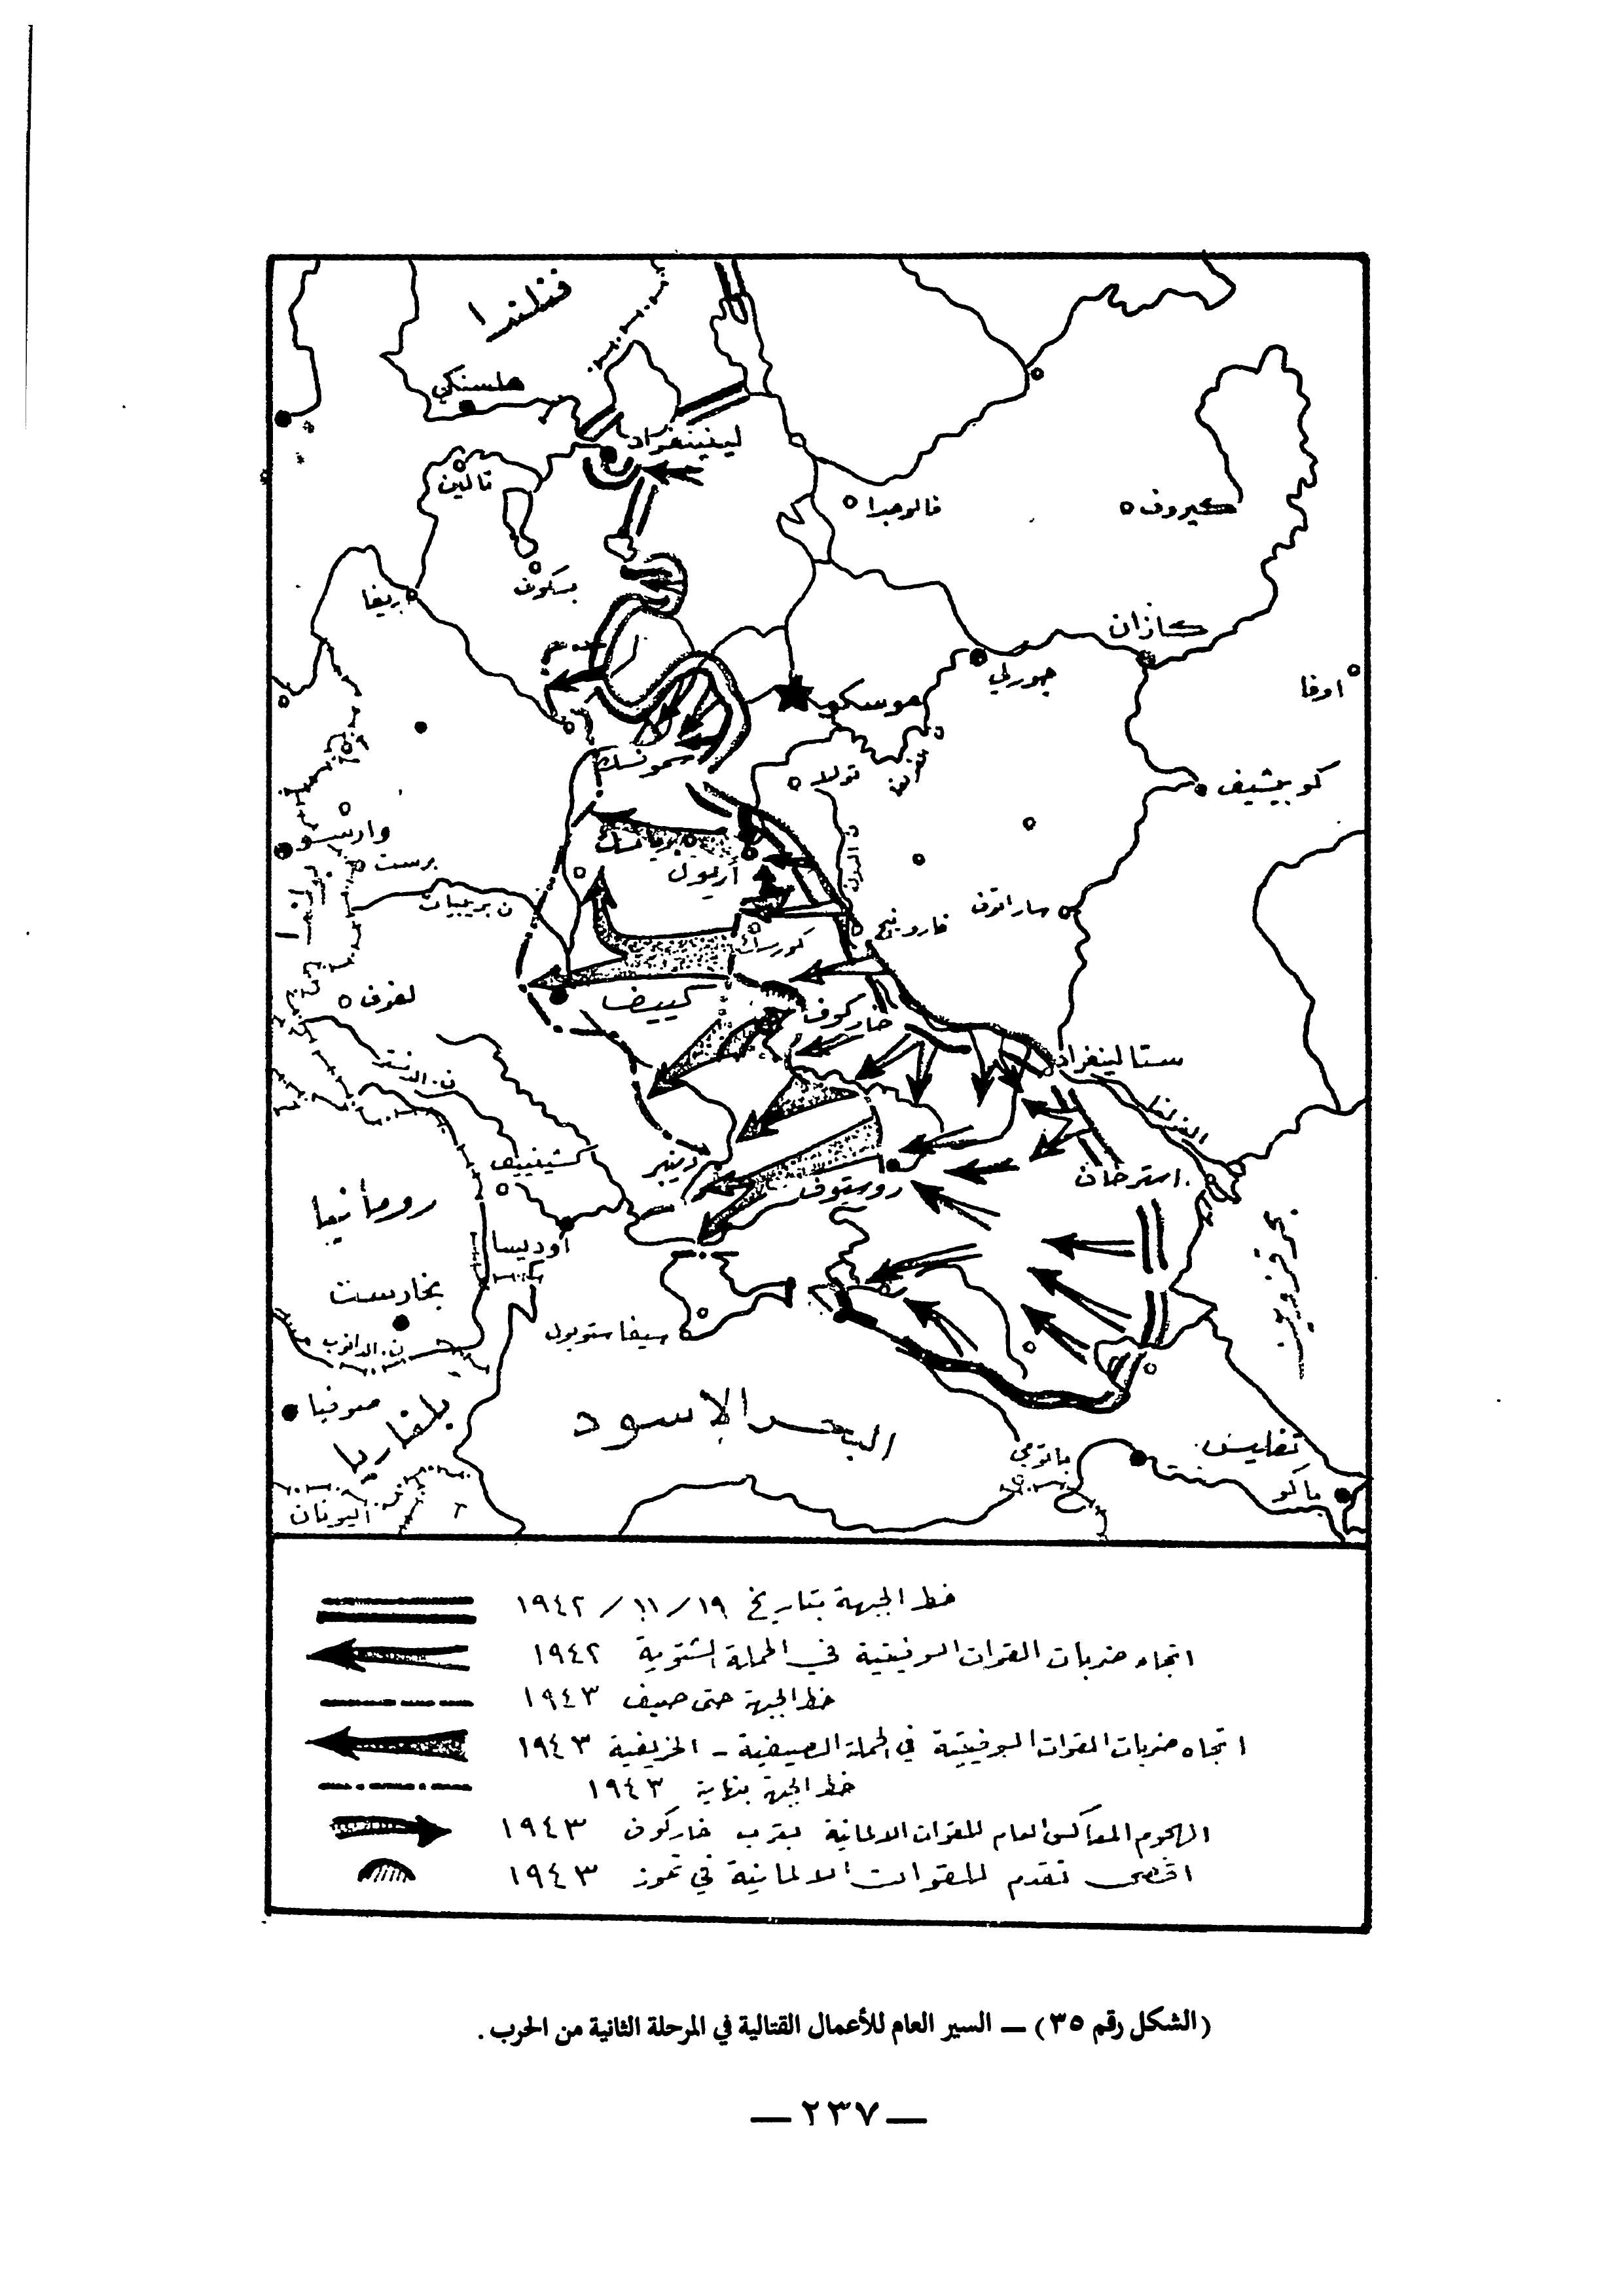 فنلندا
هلسنكي
لينينغراد
تالين
فالوجدا
كيروف
بسكوف
ريغا
كازان
جورلي
اوفا
موسكو
سمونسك
تولا
كوبيشيف
وارسو
برست
أريول
ن الدون
ن بريبيات
ساراتوف
فارونيج
كورسك
لفوف
كييف
خاركوف
ستالينغراد
ن. الدنستر
كشينييف
دنيبر
روستوف
استرخان
رومانيا
اوديسا
بحر قزوين
بخارست
سيفاستوبول
ن. الدانوب
صوفيا
بلغاريا
البحر الاسود
باتومي
تفليس
باكو
اليونان
خط الجبهة بتاريخ ١٩/ ١١/ ١٩٤٢
اتجاه ضربات القوات السوفيتية في الحملة الشتوية ١٩٤٢
خط الجبهة حتى صيف ١٩٤٣
اتجاه ضربات القوات السوفيتية في الحملة الصيفية - الخريفية ١٩٤٣
خط الجبهة بنهاية ١٩٤٣
الهجوم المعاكس العام للقوات الالمانية بقرب خاركوف ١٩٤٣
اقصى تقدم للقوات الالمانية في تموز ١٩٤٣
(الشكل رقم ٣٥) — السير العام للأعمال القتالية في المرحلة الثانية من الحرب .
— ٢٣٧ —